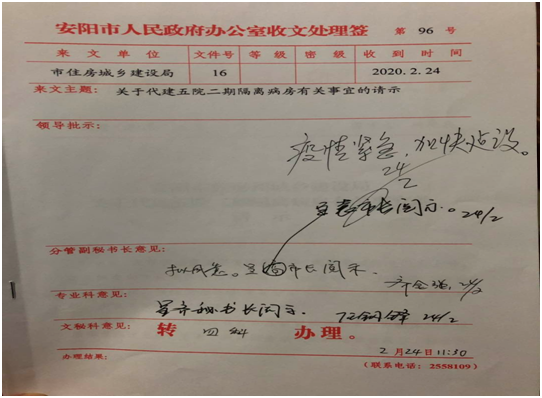 安阳市人民政府办公室收文处理签 第 96 号
来文单位 文件号 等级 密级 收到时间
市住房城乡建设局 16 2020.2.24
来文主题: 关于代建五院二期隔离病房有关事宜的请示
领导批示:
疫情紧急,加快建设。
24/2
市长阅示。24/2
分管副秘书长意见:
拟同意。呈 市长阅示.
24/2
专业科意见:
呈 秘书长阅示. 24/2
文秘科意见: 转 四科 办理。
2月24日11:30
办理结果: (联系电话: 2558109)